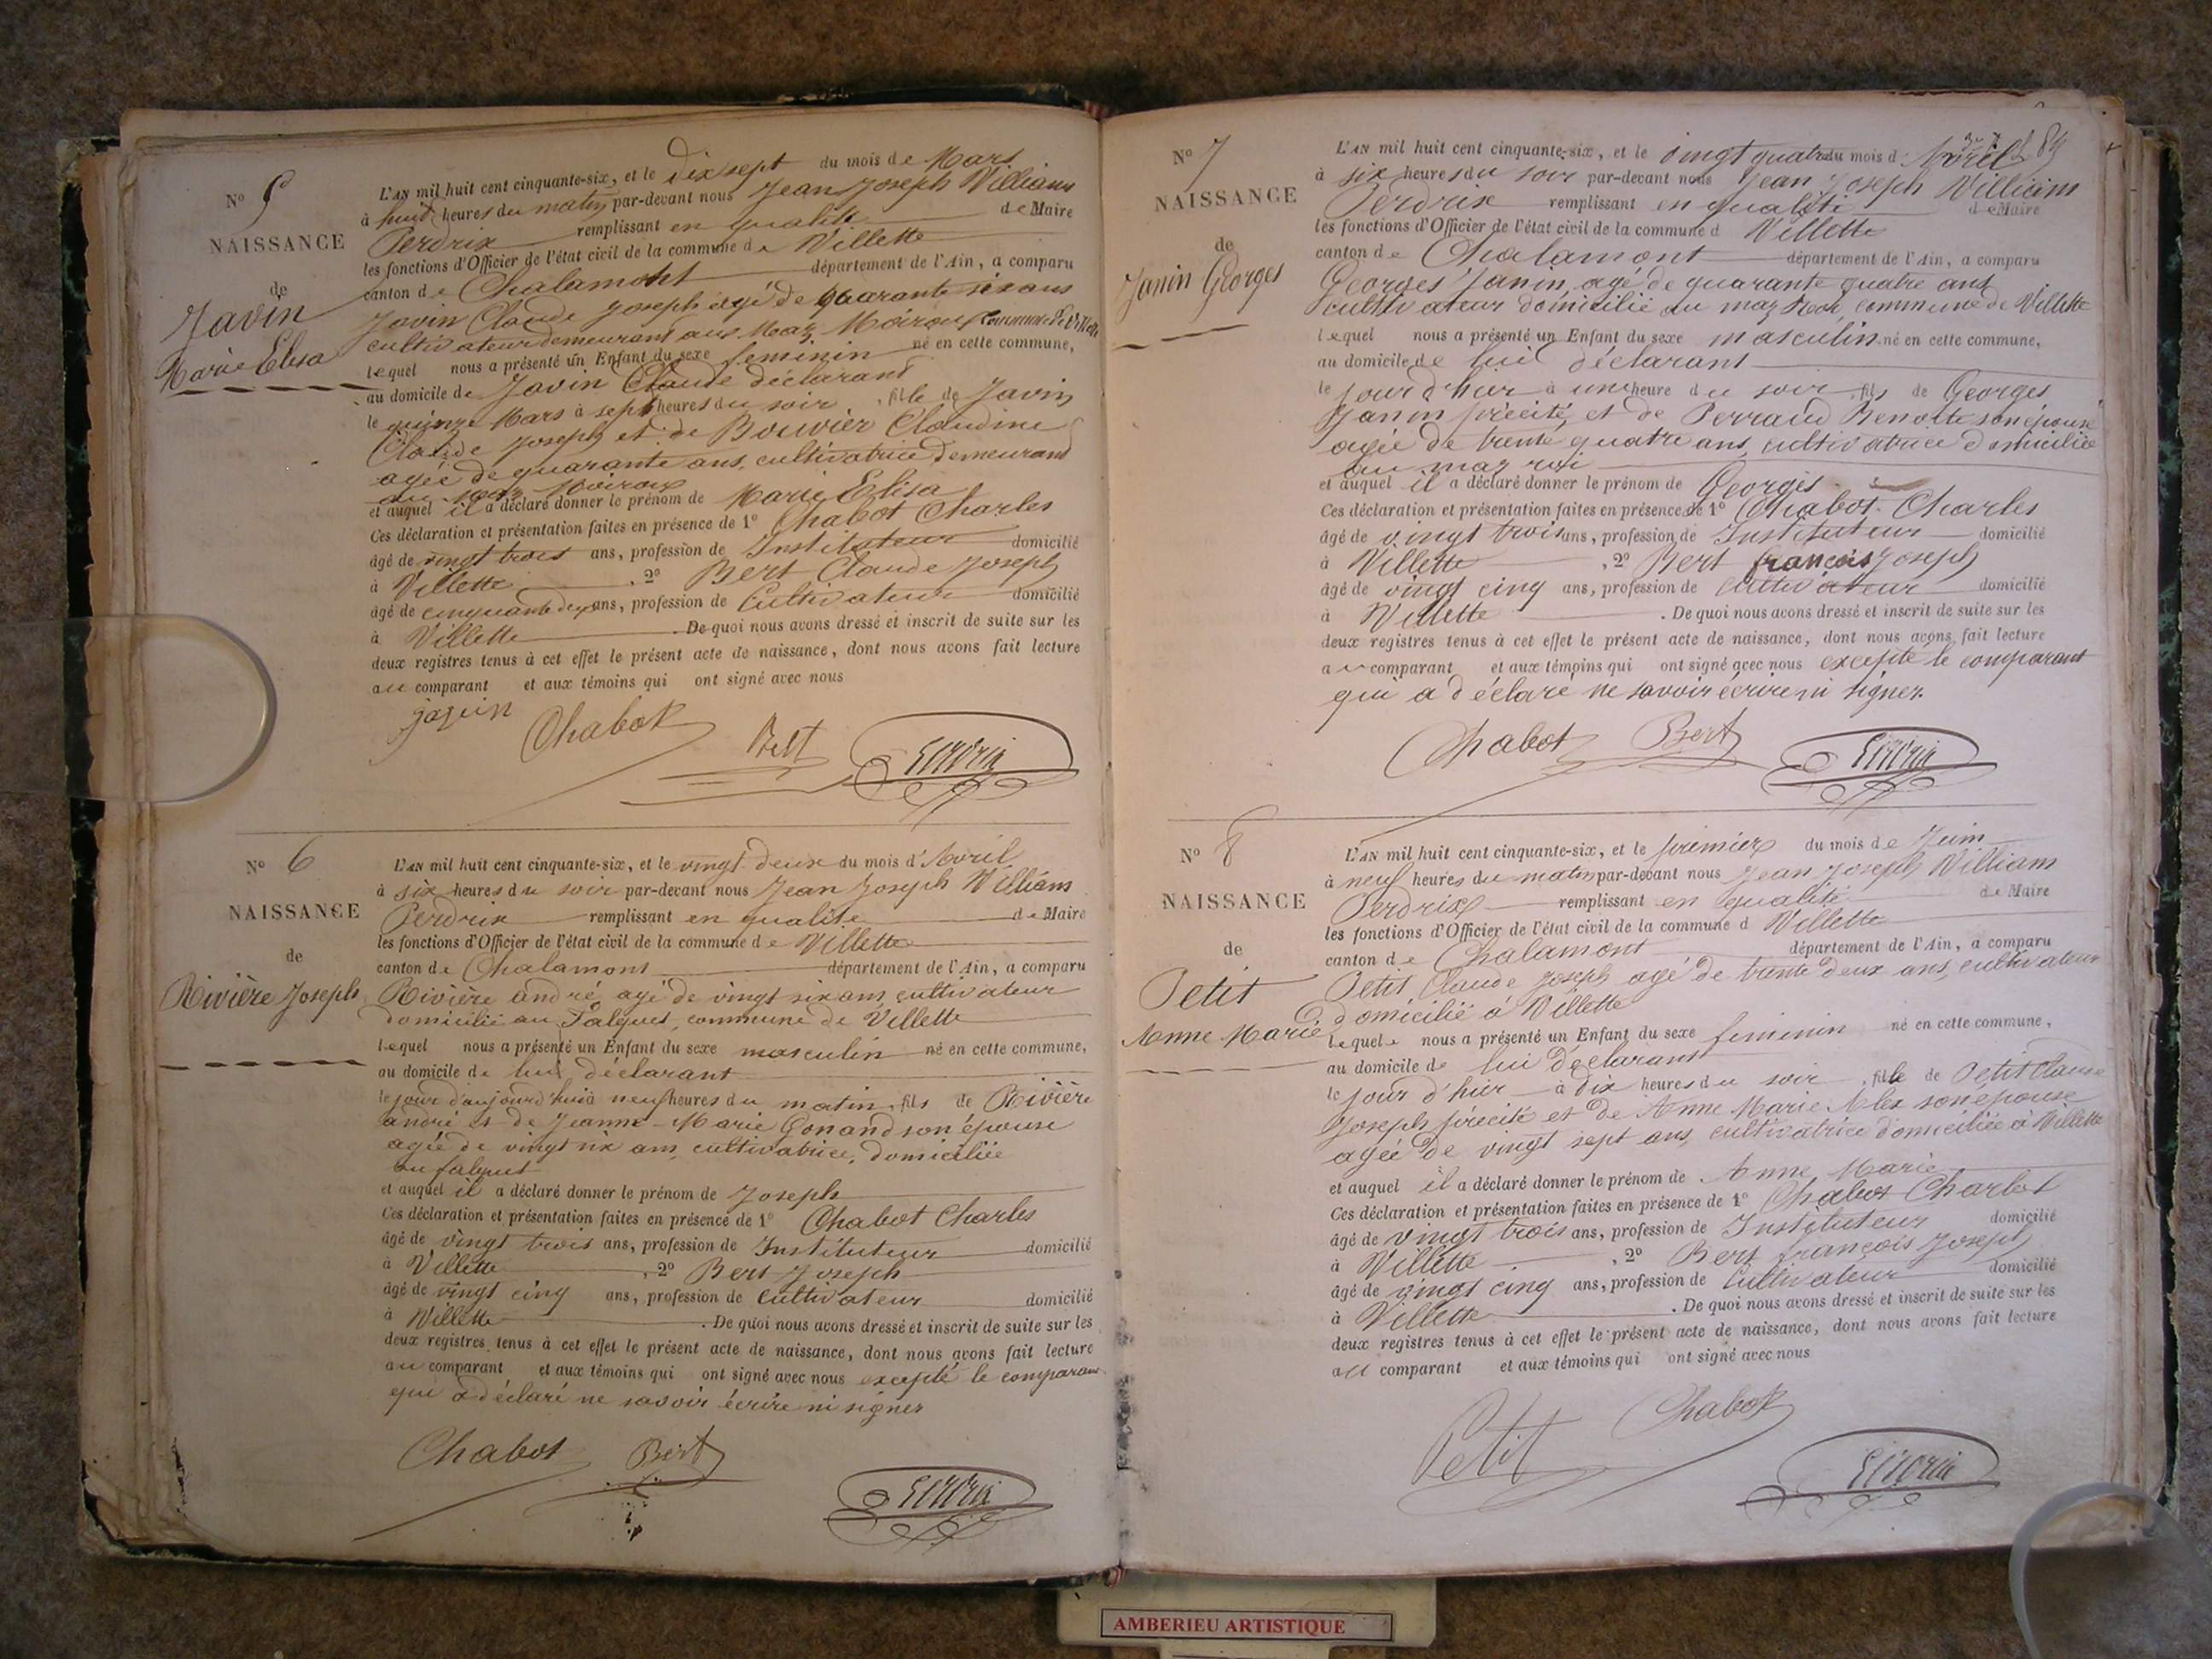 N° 5
NAISSANCE
de
Javin
Marie Elisa
L'AN mil huit cent cinquante-six, et le Dix sept du mois de Mars
à huit heures du matin par-devant nous Jean Joseph William
Perdrix remplissant en qualité de Maire
les fonctions d'Officier de l'état civil de la commune de Villette
canton de Chalamont département de l'Ain, a comparu
Javin Claude Joseph agé de quarante six ans
cultivateur demeurant aux Maz Moiroux commune de Villette
lequel nous a présenté un Enfant du sexe feminin né en cette commune,
au domicile de Javin Claude déclarant
le quinze Mars à sept heures du soir, fille de Javin
Claude Joseph et de Bouvier Claudine
agée de quarante ans, cultivatrice demeurant
au maz Moiroux
et auquel il a déclaré donner le prénom de Marie Elisa
Ces déclaration et présentation faites en présence de 1° Chabot Charles
âgé de vingt trois ans, profession de Instituteur domicilié
à Villette, 2° Bert Claude Joseph
âgé de cinquante deux ans, profession de Cultivateur domicilié
à Villette. De quoi nous avons dressé et inscrit de suite sur les
deux registres tenus à cet effet le présent acte de naissance, dont nous avons fait lecture
au comparant et aux témoins qui ont signé avec nous
Chabot Bert
N° 6
NAISSANCE
de
Rivière Joseph
L'AN mil huit cent cinquante-six, et le vingt deux du mois d'Avril
à six heures du soir par-devant nous Jean Joseph William
Perdrix remplissant en qualité de Maire
les fonctions d'Officier de l'état civil de la commune de Villette
canton de Chalamont département de l'Ain, a comparu
Rivière andré, agé de vingt six ans, cultivateur
domicilié au Falquet, commune de Villette
lequel nous a présenté un Enfant du sexe masculin né en cette commune,
au domicile de lui déclarant
le jour d'aujourd'hui à neuf heures du matin, fils de Rivière
andré et de Jeanne-Marie Gonand son épouse
agée de vingt six ans, cultivatrice, domiciliée
au falquet
et auquel il a déclaré donner le prénom de Joseph
Ces déclaration et présentation faites en présence de 1° Chabot Charles
âgé de vingt trois ans, profession de Instituteur domicilié
à Villette, 2° Bert Joseph
âgé de vingt cinq ans, profession de cultivateur domicilié
à Villette. De quoi nous avons dressé et inscrit de suite sur les
deux registres tenus à cet effet le présent acte de naissance, dont nous avons fait lecture
au comparant et aux témoins qui ont signé avec nous excepté le comparant
qui a déclaré ne savoir écrire ni signer
Chabot Bert
N° 7
NAISSANCE
de
Janin Georges
L'AN mil huit cent cinquante-six, et le vingt quatre du mois d'Avril
à six heures du soir par-devant nous Jean Joseph William
Perdrix remplissant en qualité de Maire
les fonctions d'Officier de l'état civil de la commune d Villette
canton de Chalamont département de l'Ain, a comparu
Georges Janin, agé de quarante quatre ans
cultivateur domicilié au maz Roi, commune de Villette
lequel nous a présenté un Enfant du sexe masculin né en cette commune,
au domicile de lui déclarant
le jour d'hier à une heure du soir, fils de Georges
Janin précité, et de Perraud Benoite son épouse
agée de trente quatre ans, cultivatrice domiciliée
au maz roi
et auquel il a déclaré donner le prénom de Georges
Ces déclaration et présentation faites en présence de 1° Chabot Charles
âgé de vingt trois ans, profession de Instituteur domicilié
à Villette, 2° Bert françois Joseph
âgé de vingt cinq ans, profession de cultivateur domicilié
à Villette. De quoi nous avons dressé et inscrit de suite sur les
deux registres tenus à cet effet le présent acte de naissance, dont nous avons fait lecture
au comparant et aux témoins qui ont signé avec nous excepté le comparant
qui a déclaré ne savoir écrire ni signer.
Chabot Bert
N° 8
NAISSANCE
de
Petit
Anne Marie
L'AN mil huit cent cinquante-six, et le premier du mois de Juin
à neuf heures du matin par-devant nous Jean Joseph William
Perdrix remplissant en qualité de Maire
les fonctions d'Officier de l'état civil de la commune d Villette
canton de Chalamont département de l'Ain, a comparu
Petit Claude Joseph agé de trente deux ans, cultivateur
domicilié à Villette
lequel nous a présenté un Enfant du sexe feminin né en cette commune,
au domicile de lui déclarant
le jour d'hier à dix heures du soir, fille de Petit Claude
Joseph précité et de Anne Marie Alex son épouse
agée de vingt sept ans, cultivatrice domiciliée à Villette
et auquel il a déclaré donner le prénom de Anne Marie
Ces déclaration et présentation faites en présence de 1° Chabot Charles
âgé de vingt trois ans, profession de Instituteur domicilié
à Villette, 2° Bert françois Joseph
âgé de vingt cinq ans, profession de Cultivateur domicilié
à Villette. De quoi nous avons dressé et inscrit de suite sur les
deux registres tenus à cet effet le présent acte de naissance, dont nous avons fait lecture
au comparant et aux témoins qui ont signé avec nous
Petit Chabot
AMBERIEU ARTISTIQUE